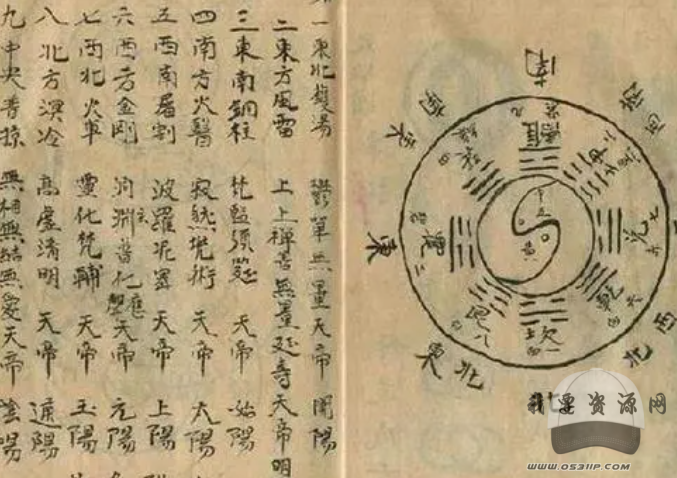 南
西南
東南
東
東北
西北
離
九
坤
二
巽
四
震
三
兌
七
乾
六
坎
一
艮
八
一東北鑊湯 鬱單無量天帝 開陽
二東方風雷 上上禪善無量延壽天帝 明
三東南銅柱 梵監須延 天帝 始陽
四南方火翳 寂然兜術 天帝 太陽
五西南屠割 波羅尼蜜 天帝 上陽
六西方金剛 洞淵玄普化應聲天帝 元陽
七西北火車 靈化梵輔 天帝 玉陽
八北方溟冷 高虛清明 天帝 通陽
九中央普掠 無想無結無愛天帝 陰陽
我要资源网
WWW.OS311P.COM